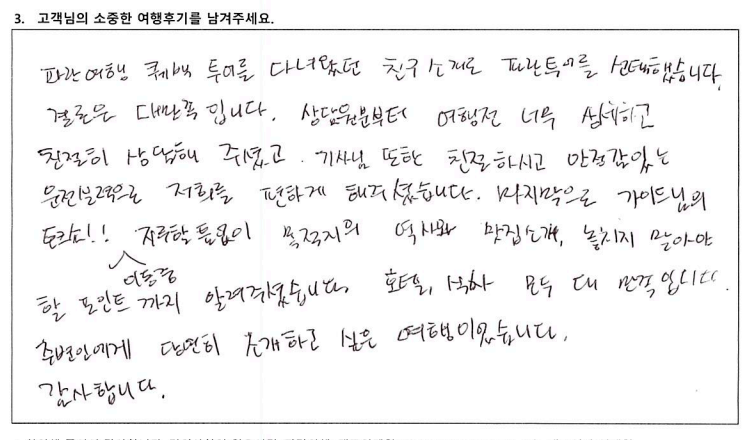 3. 고객님의 소중한 여행후기를 남겨주세요.
파란여행 퀘백 투어를 다녀왔던 친구 소개로 파란투어를 선택했습니다.
결론은 대만족입니다. 상담원분부터 여행전 너무 섬세하고
친절히 상담해 주셨고. 기사님 또한 친절하시고 안정감있는
운전실력으로 저희를 편하게 해주셨습니다. 마지막으로 가이드님의
토크쇼!! 지루할 틈없이 목적지의 역사와 맛집소개, 놓치지 말아야
이동중
할 포인트까지 알려주셨습니다. 호텔, 식사 모두 대만족입니다.
주변인에게 당연히 소개하고 싶은 여행이었습니다.
감사합니다.